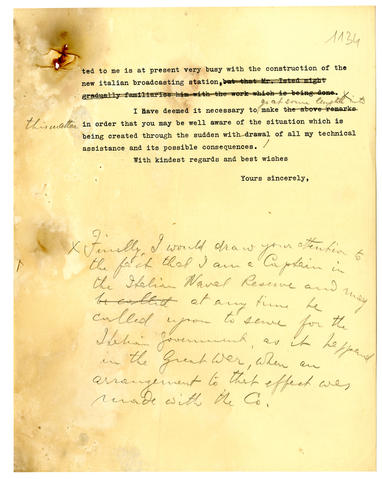 1134
ted to me is at present very busy with the construction of the
new italian broadcasting station,but that Mr. Isted might
gradually familiarise him with the work which is being done.
go at some length into
I have deemed it necessary to make the above remarks x
this matter
in order that you may be well aware of the situation which is
being created through the sudden with-drawal of all my technical
assistance and its possible consequences.
With kindest regards and best wishes
Yours sincerely,
x Finally, I would draw your attention to
the fact that I am a Captain in
the Italian Naval Reserve and may
be called at any time be
called upon to serve for the
Italian Government, as it happened
in the Great War, when an
arrangement to that effect was
made with the Co.